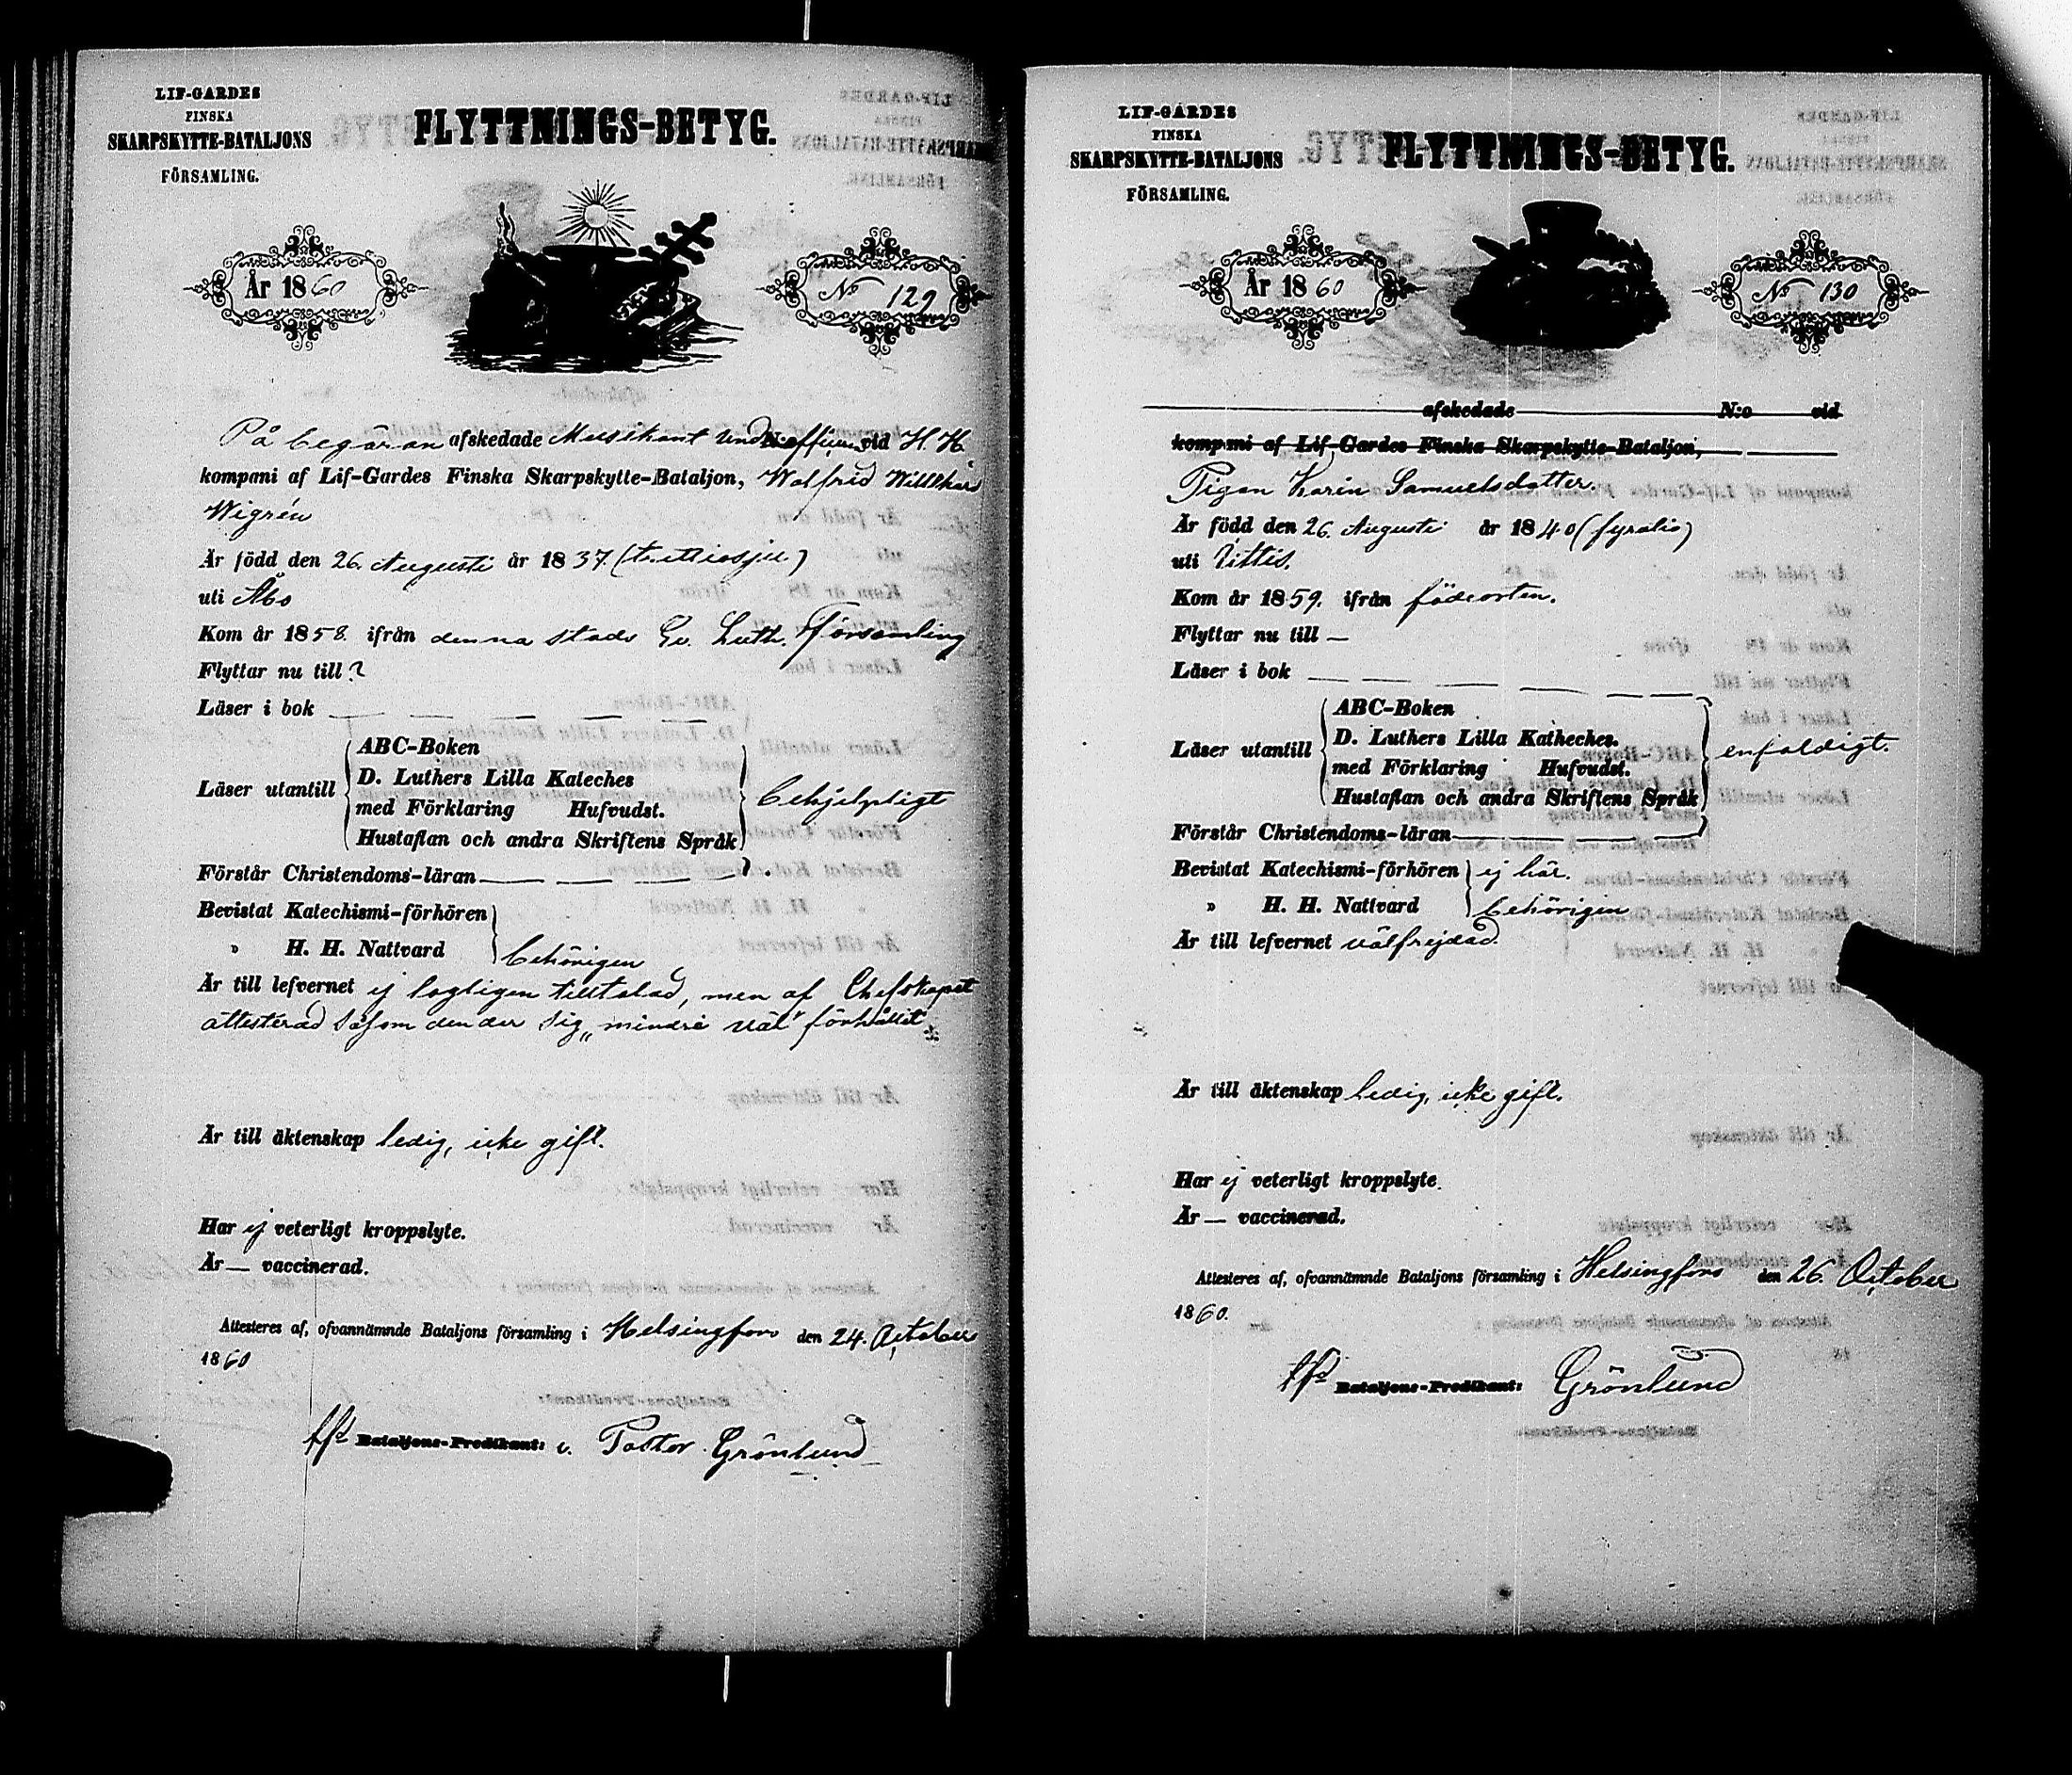 LIF-GARDES
FINSKA
SKARPSKYTTE-BATALJONS
FÖRSAMLING.
FLYTTNINGS-BETYG.
År 1860
No 129
På begäran afskedade Musikant vid H. H.
kompani af Lif-Gardes Finska Skarpskytte-Bataljon, Walfrid
Wigrén
Är född den 26. Augusti år 1837. (trettiosju)
uti Åbo
Kom år 1858. ifrån denna stads Ev. Luth. Församling
Flyttar nu till ?
Läser i bok
Läser utantill
ABC-Boken
D. Luthers Lilla Kateches
med Förklaring Hufvudst.
Hustaflan och andra Skriftens Språk
behjelpligt
Förstår Christendoms-läran
Bevistat Katechismi-förhören
» H. H. Nattvard
behörigen
Är till lefvernet ej lagligen tilltalad, men af Chefskapet
attesterad såsom den der sig „mindre väl" förhållit.
Är till äktenskap ledig, icke gift.
Har ej veterligt kroppslyte.
Är — vaccinerad.
Attesteres af, ofvannämnde Bataljons församling i Helsingfors den 24. October
1860
Bataljons-Predikant: v. Pastor Grönlund
LIF-GARDES
FINSKA
SKARPSKYTTE-BATALJONS
FÖRSAMLING.
FLYTTNINGS-BETYG.
År 1860
No 130
afskedade N:o vid
kompani af Lif-Gardes Finska Skarpskytte-Bataljon,
Pigan Karin Samuelsdotter.
Är född den 26 Augusti år 1840 (fyratio)
uti Vittis.
Kom år 1859. ifrån födeorten.
Flyttar nu till —
Läser i bok
Läser utantill
ABC-Boken
D. Luthers Lilla Katheches.
med Förklaring Hufvudst.
Hustaflan och andra Skriftens Språk
enfaldigt.
Förstår Christendoms-läran
Bevistat Katechismi-förhören ej här.
» H. H. Nattvard behörigen
Är till lefvernet välfrejdad.
Är till äktenskap ledig, icke gift.
Har ej veterligt kroppslyte.
Är — vaccinerad.
Attesteres af, ofvannämnde Bataljons församling i Helsingfors den 26. October
1860.
Bataljons-Predikant: Grönlund